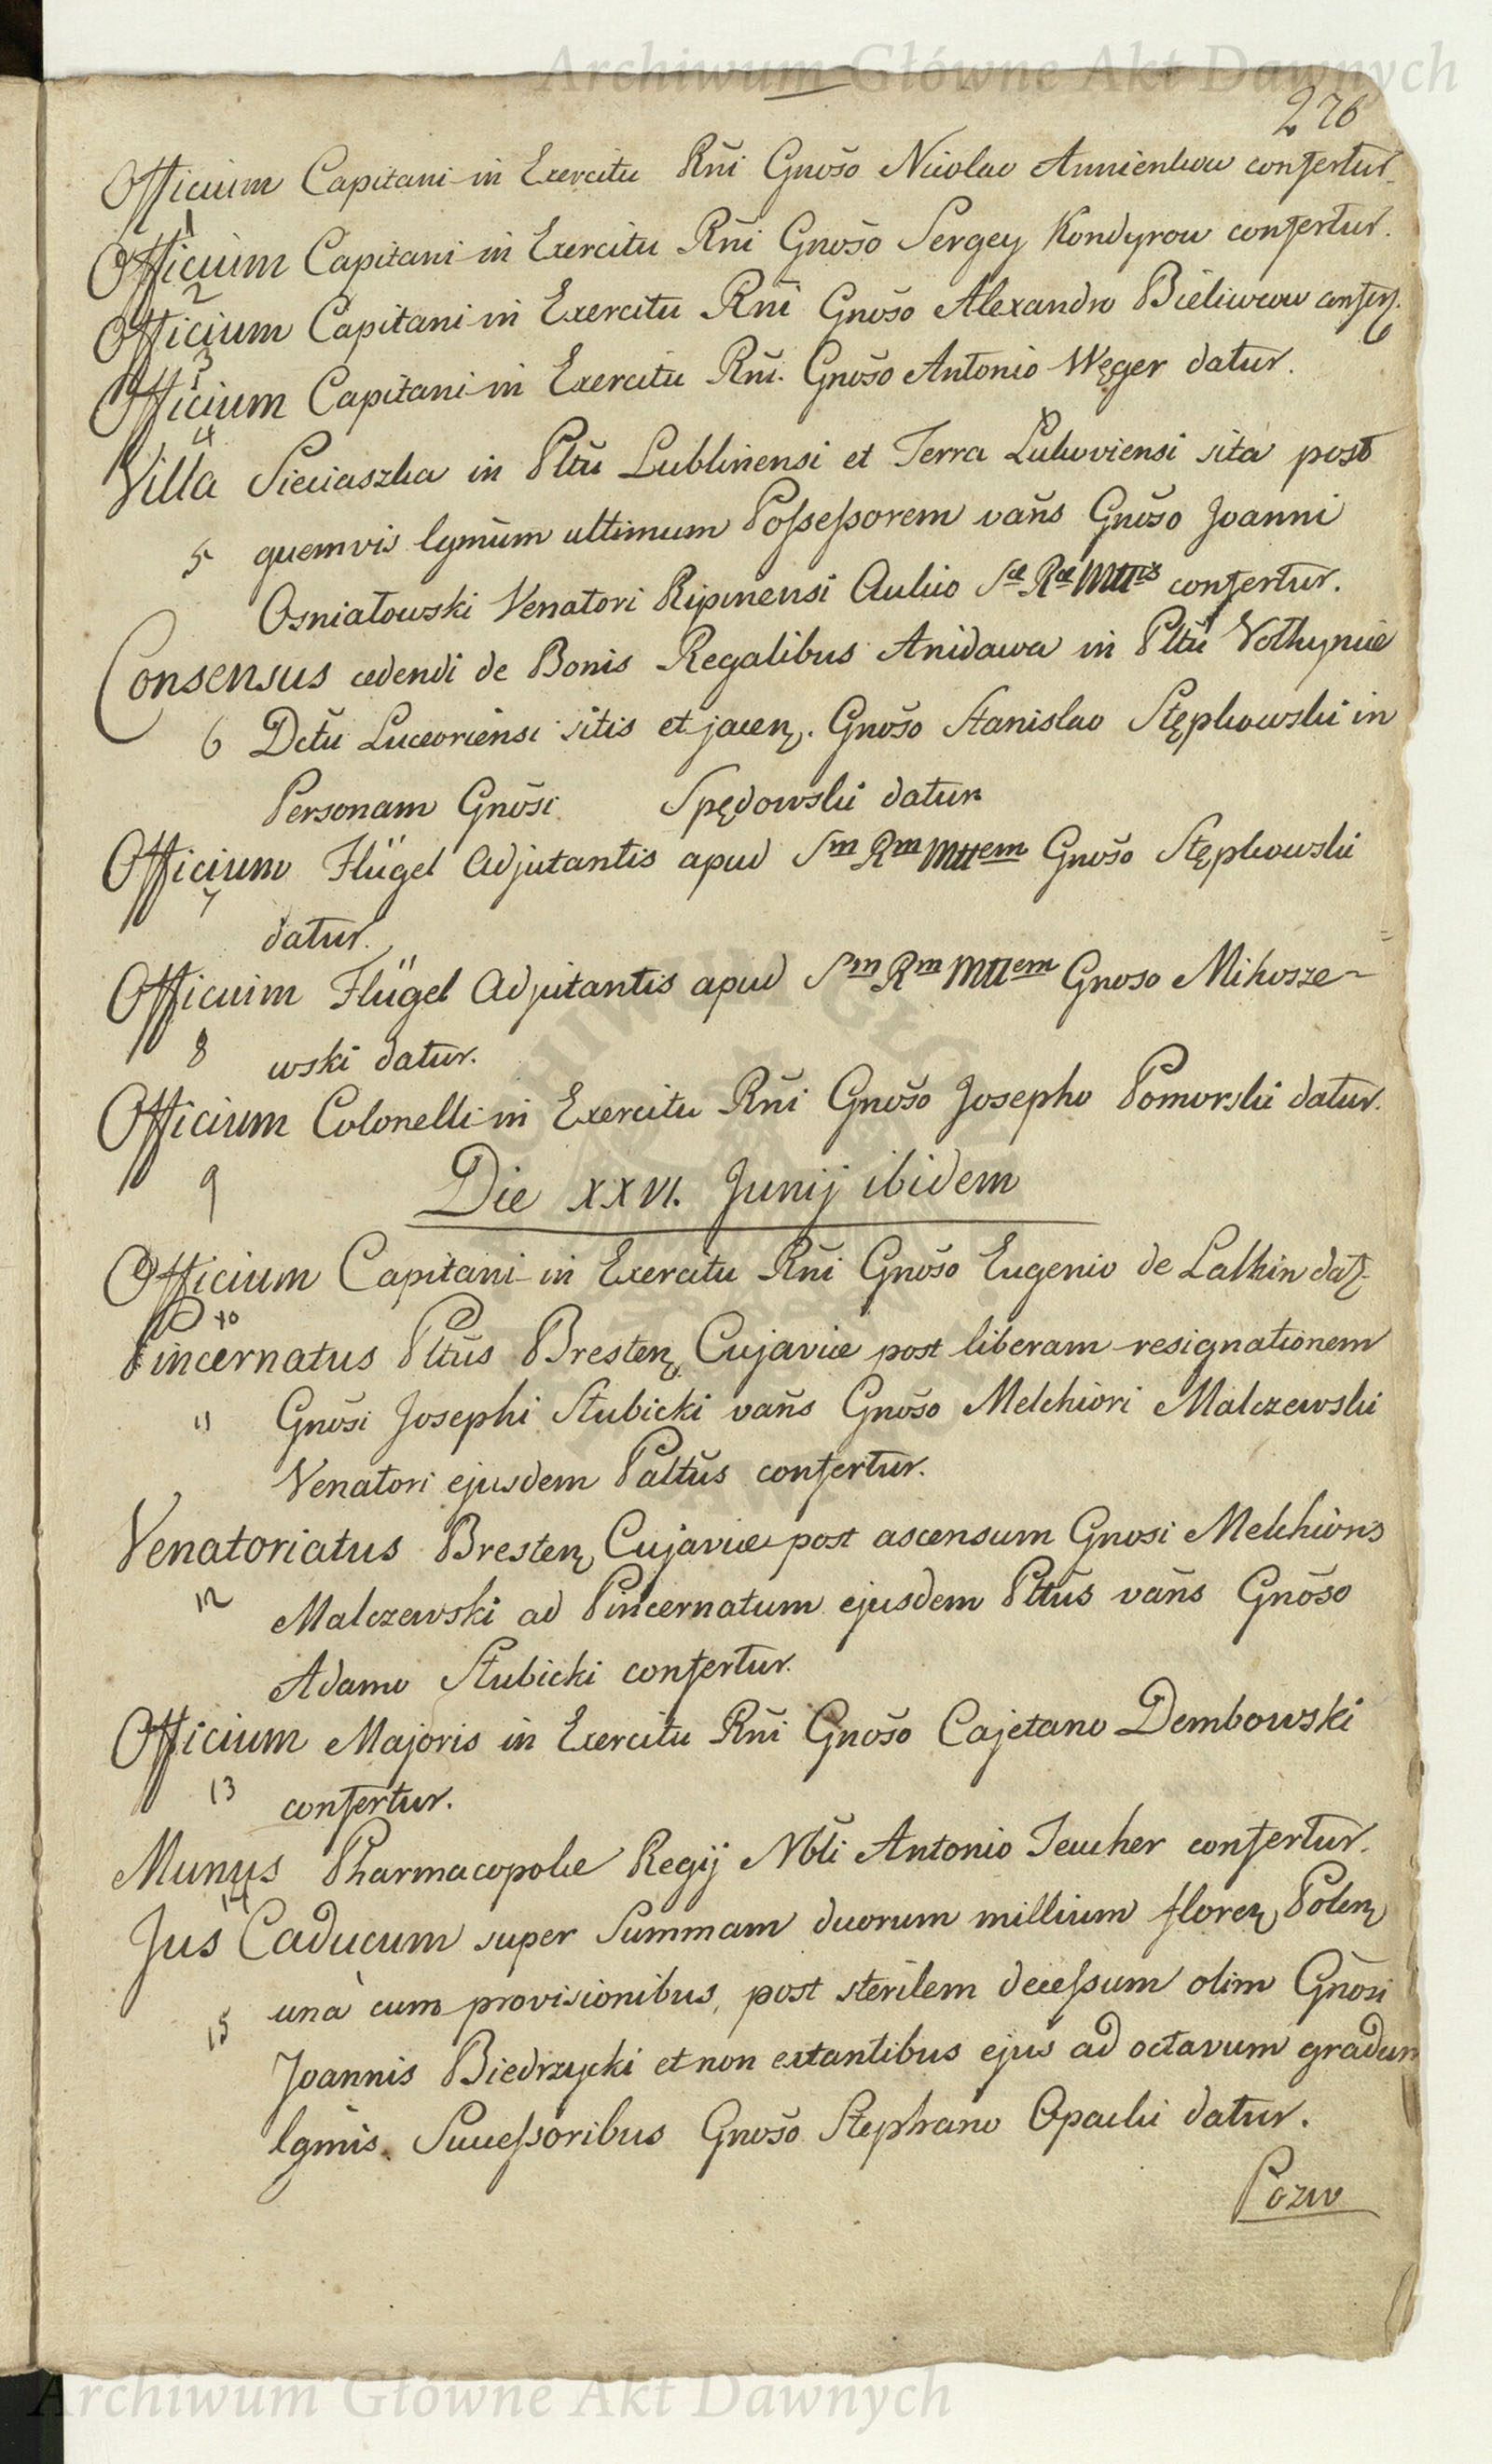 Archiwum Główne Akt Dawnych
276
Officium Capitani in Exercitu Rñi Gnošo Nicolao Annienkow confertur
1
Officium Capitani in Exercitu Rñi Gnošo Sergey Kondyrow confertur.
2
Officium Capitani in Exercitu Rñi Gnošo Alexandro Bieliwcow
3
Officium Capitani in Exercitu Rñi. Gnošo Antonio Węger datur.
4
Villa Sieciaszka in Pltũ Lublinensi et Terra Lukoviensi sita post
5 quemvis lgmũm ultimum Poſseſsorem vañs Gnošo Joanni
Osniałowski Venatori Ripinensi Aulico Sæ Ræ Mttis confertur.
Consensus cedendi de Bonis Regalibus Anidawa in Pltũ Volhyniæ
6 Dctũ Luceoriensi sitis et jacen. Gnošo Stanislao Stępkowski in
Personam Gnõsi Spędowski datur
Officium Flügel Adjutantis apud Sm Rm Mttem Gnošo Stępkowski
7
datur.
Officium Flügel Adjutantis apud Sm Rm Mttem Gnoso Mikosze-
8 wski datur.
Officium Colonelli in Exercitu Rñi Gnošo Josepho Pomorski datur.
9 Die XXVI. Junij ibidem
Officium Capitani in Exercitu Rñi Gnošo Eugenio de Lalkin dat
10
Pincernatus Pltũs Bresten Cujaviæ post liberam resignationem
11 Gnõsi Josephi Słubicki vañs Gnošo Melchiori Malczewski
Venatori ejusdem Paltũs confertur.
Venatoriatus Bresten Cujaviæ post ascensum Gnosi Melchioris
12 Malczewski ad Pincernatum ejusdem Pltũs vañs Gnõso
Adamo Słubicki confertur.
Officium Majoris in Exercitu Rñi Gnošo Cajetano Dembowski
13 confertur.
Munus Pharmacopolæ Regij Nbli Antonio Teucher confertur.
14
Jus Caducum super Summam duorum millium floren Polen
15 unà cum provisionibus, post sterilem deceſsum olim Gñosi
Joannis Biedrzycki et non extantibus ejus ad octavum gradum
lgmis Succeſsoribus Gnošo Stephano Opacki datur.
Pozw
Archiwum Główne Akt Dawnych